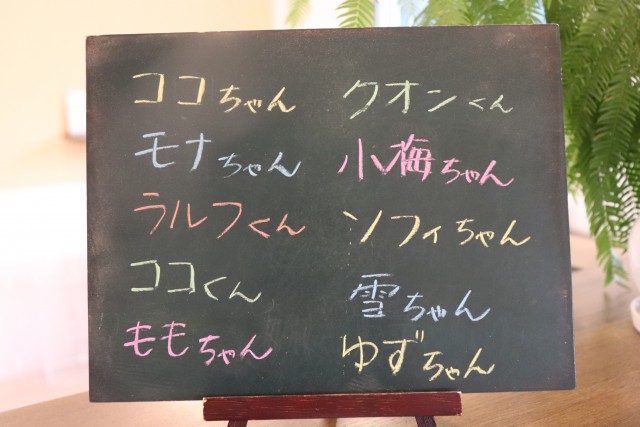 ココちゃん
モナちゃん
ラルフくん
ココくん
ももちゃん
クオンくん
小梅ちゃん
ソフィちゃん
雪ちゃん
ゆずちゃん